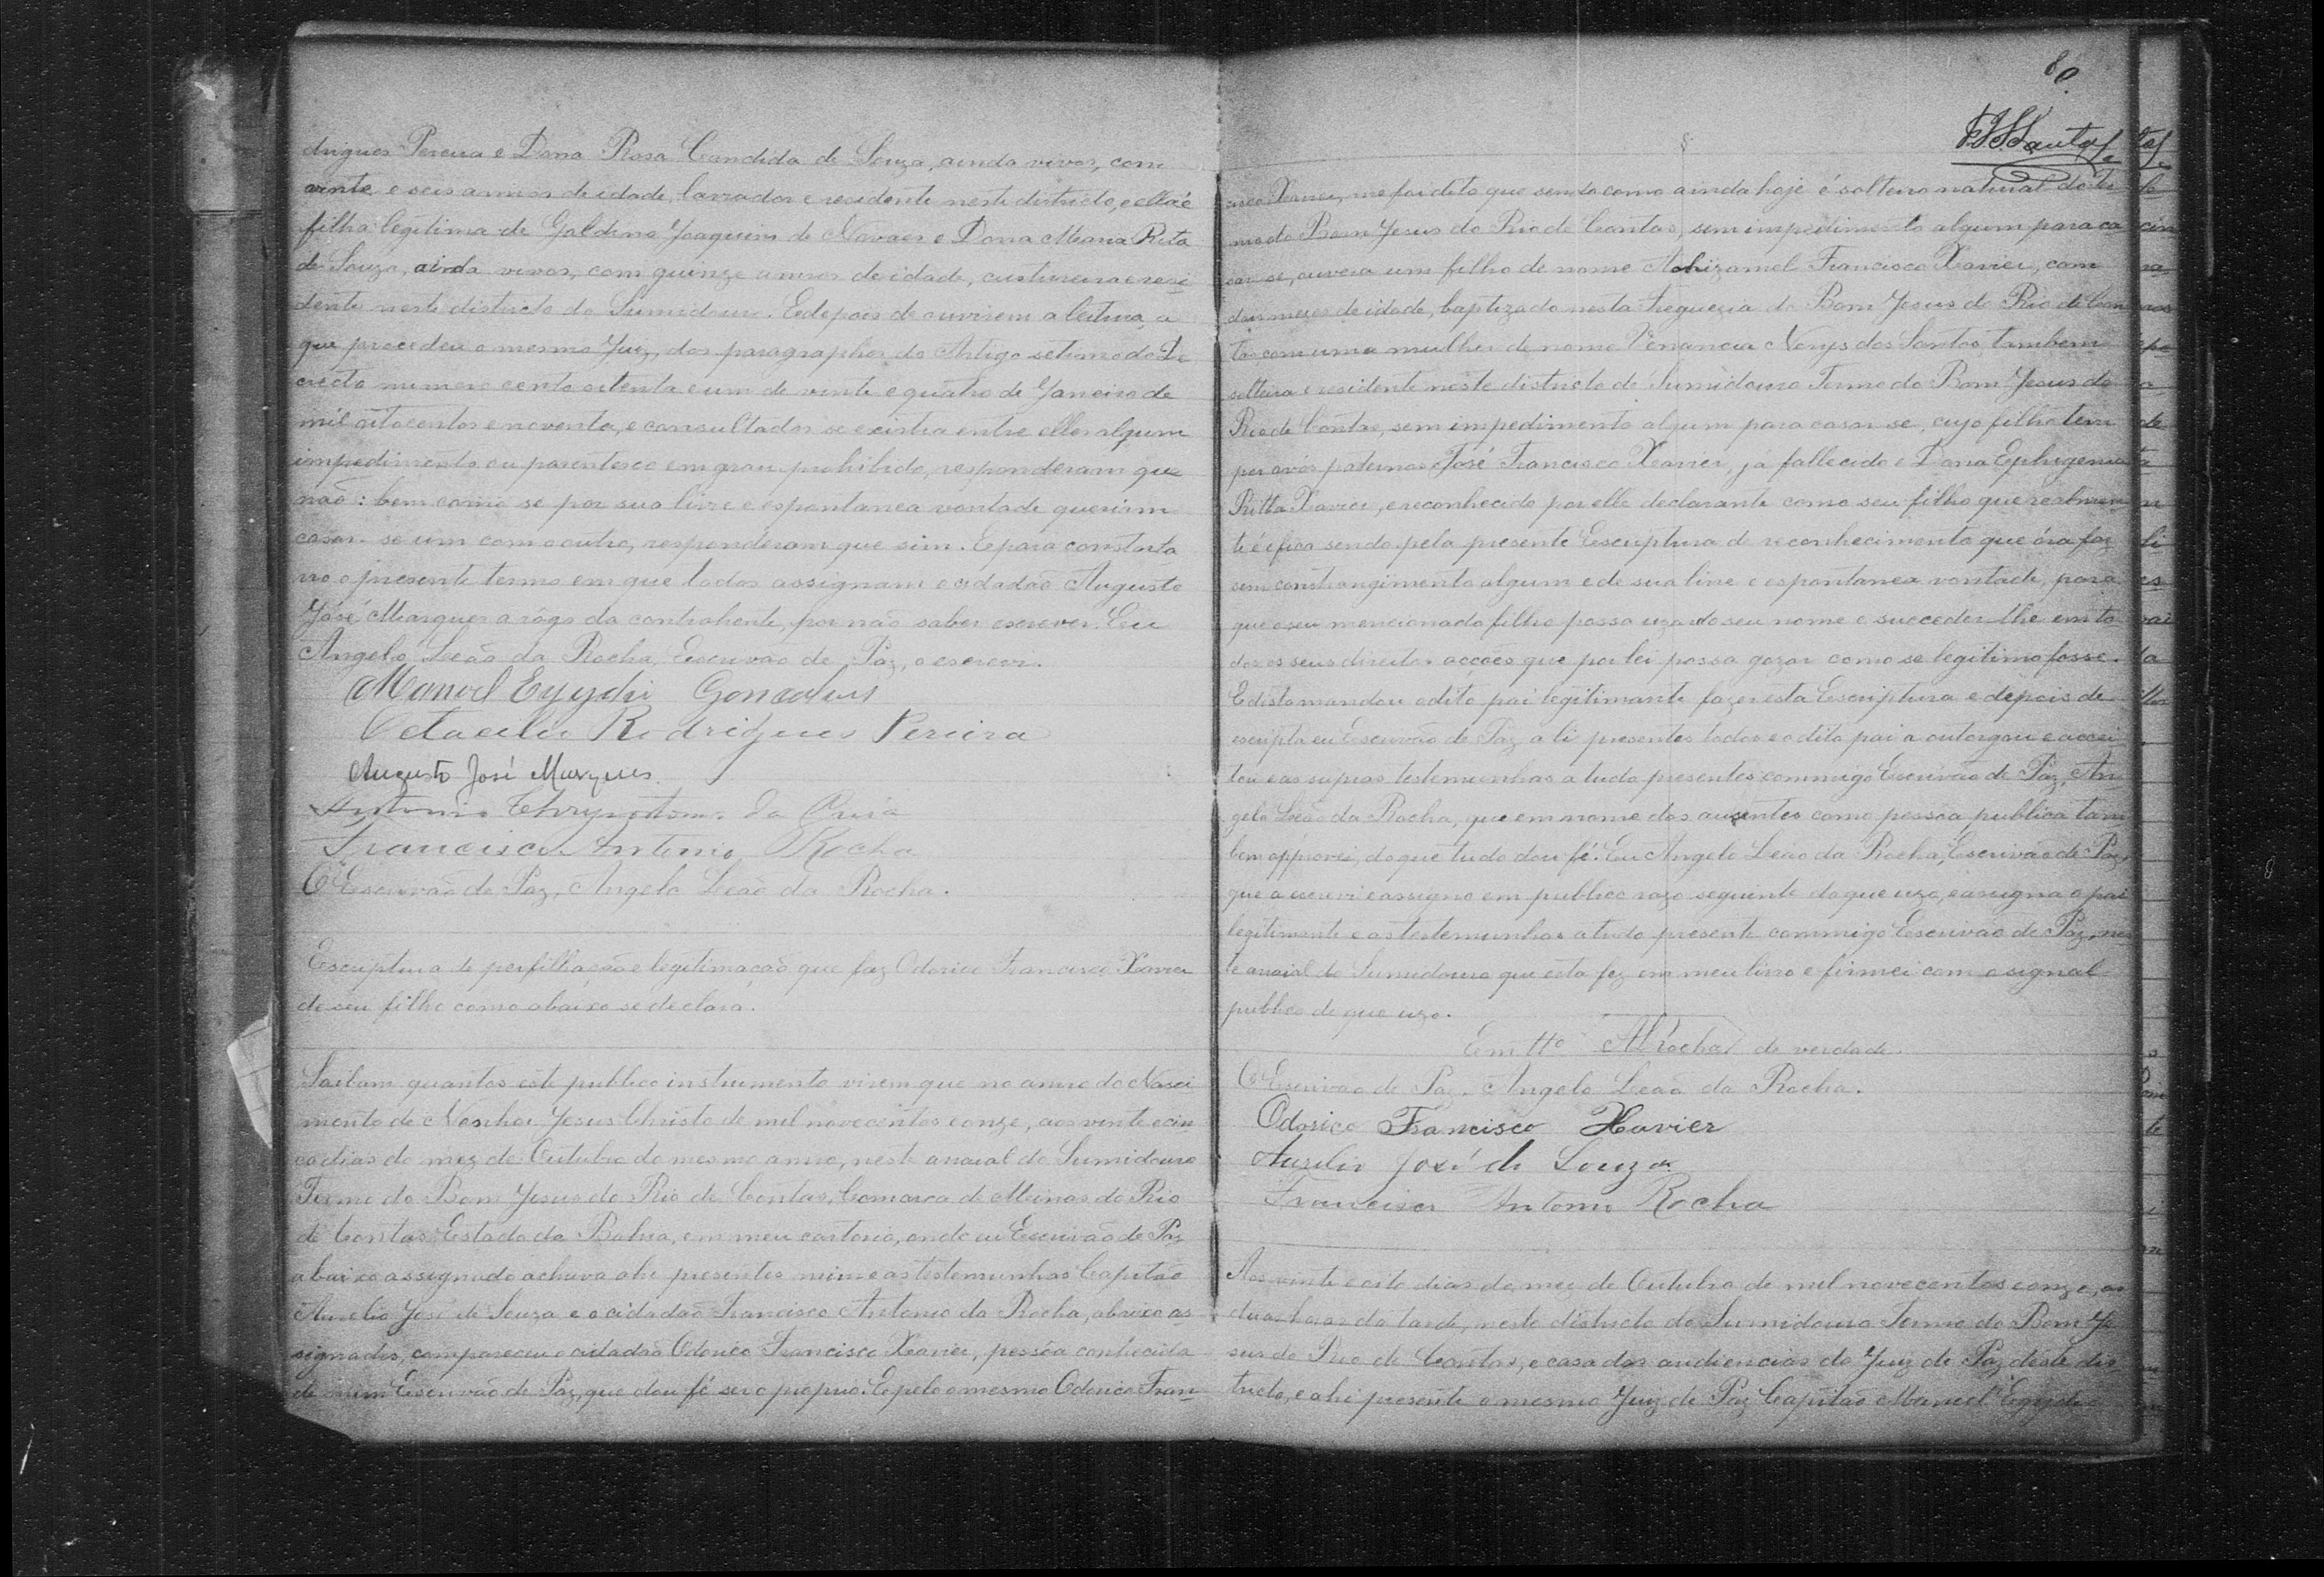 drigues Pereira e Dona Rosa Candida de Souza, ainda vivos, com
vinte e seis annos de idade, lavrador e recidente neste districto, e ella é
filha legitima de Galdino Joaquim de Novaes e Dona Maria Rita
de Souza, ainda vivos, com quinze annos de idade, custureira e resi
dente neste districto do Sumidouro. E depois de ouvirem a leitura, a
que procedeu o mesmo Juiz, dos paragraphos do Artigo setimo do De
creto numero cento oitenta e um de vinte e quatro de Janeiro de
mil oitocentos e noventa, e consultados se existia entre elles algum
impedimento ou parentesco em grau prohibido, responderam que
não: bem como se por sua livre e espontanea vontade queriam
casar-se um com o outro, responderam que sim. E para constar la
vro o presente termo em que todos assignam e o cidadão Augusto
José Marques a rôgo da contrahente, por não saber escrever. Eu
Angelo Leão da Rocha, Escrivão de Paz, o escrevi.
Manoel Egydio Gonsalves
Octacilio Rodrigues Pereira
Augusto José Marques
Antonio Chrysostomo da
Francisco Antonio Rocha
O Escrivão de Paz, Angelo Leão da Rocha.
Escriptura de perfilhação e legitimação que faz Odorico Francisco Xavier
de seu filho como abaixo se declara.
Saibam quantos este publico instrumento virem que no anno do Nasci
mento de Nosso Jesus Christo de mil novecentos e onze, aos vinte e cin
co dias do mez de Outubro do mesmo anno, neste arraial do Sumidouro
Termo do Bom Jesus do Rio de Contas, Comarca de Minas do Rio
de Contas Estado da Bahia, em meu cartorio, onde eu Escrivão de Paz
abaixo assignado achava ahi presentes mim e as testemunhas Capitão
Aurelio José de Souza e o cidadão Francisco Antonio da Rocha, abaixo as
signados, compareceu o cidadão Odorico Francisco Xavier, pessôa conhecida
de mim Escrivão de Paz, que dou fé ser o proprio. E pelo o mesmo Odorico Fran-
80
Santos
cisco Xavier, me foi dito que sendo como ainda hoje é solteiro natural do Ter
mo do Bom Jesus do Rio de Contas, sem impedimento algum para ca
sar-se, ouvera um filho de nome Francisco Xavier, com
dois mezes de idade, baptizado nesta freguezia do Bom Jesus do Rio de Con
tas, com uma mulher de nome Venancia Nerys dos Santos, tambem
solteira e residente neste districto de Sumidouro Termo do Bom Jesus do
Rio de Contas, sem impedimento algum para casar-se, cujo filho tem
por avós paternos José Francisco Xavier, já fallecido e Dona Ephigenia
Ritta Xavier, e reconhecido por elle declarante como seu filho que realmen
te é e fica sendo pela presente Escriptura de reconhecimento que óra faz
sem constrangimento algum e de sua livre e espontanea vontade, para
que o seu mencionado filho possa uzar do seu nome e succeder-lhe em to
dos os seus direitos acções que por lei possa gozar como se legitimo fosse.
E disto mandou o dito pai legitimante fazer esta Escriptura e depois de
escripta eu Escrivão de Paz a li presentes todos e o dito pai a outorgou e accei
tou e as supras testemunhas a tudo presentes commigo Escrivão de Paz, An
gelo Leão da Rocha, que em nome dos ausentes como pessôa publica tam
bem approvei, do que tudo dou fé. Eu Angelo Leão da Rocha, Escrivão de Paz,
que a escrevi e assigno em publico razo seguinte do que uzo, e assigna o pai
legitimante e as testemunhas a tudo presente commigo Escrivão de Paz, nes
te arraial do Sumidouro que esta fez em meu livro e firmei com o signal
publico de que uzo.
Em tto ALRocha de verdade.
O Escrivão de Paz. Angelo Leão da Rocha.
Odorico Francisco Xavier
Aurelio José de Souza
Francisco Antonio Rocha
Aos vinte e oito dias do mez de Outubro de mil novecentos e onze, as
duas horas da tarde, neste districto do Sumidouro Termo do Bom Je
sus do Rio de Contas, e casa das audiencias do Juiz de Paz deste dis
tricto, e ahi presente o mesmo Juiz de Paz Capitão Manoel Egydio